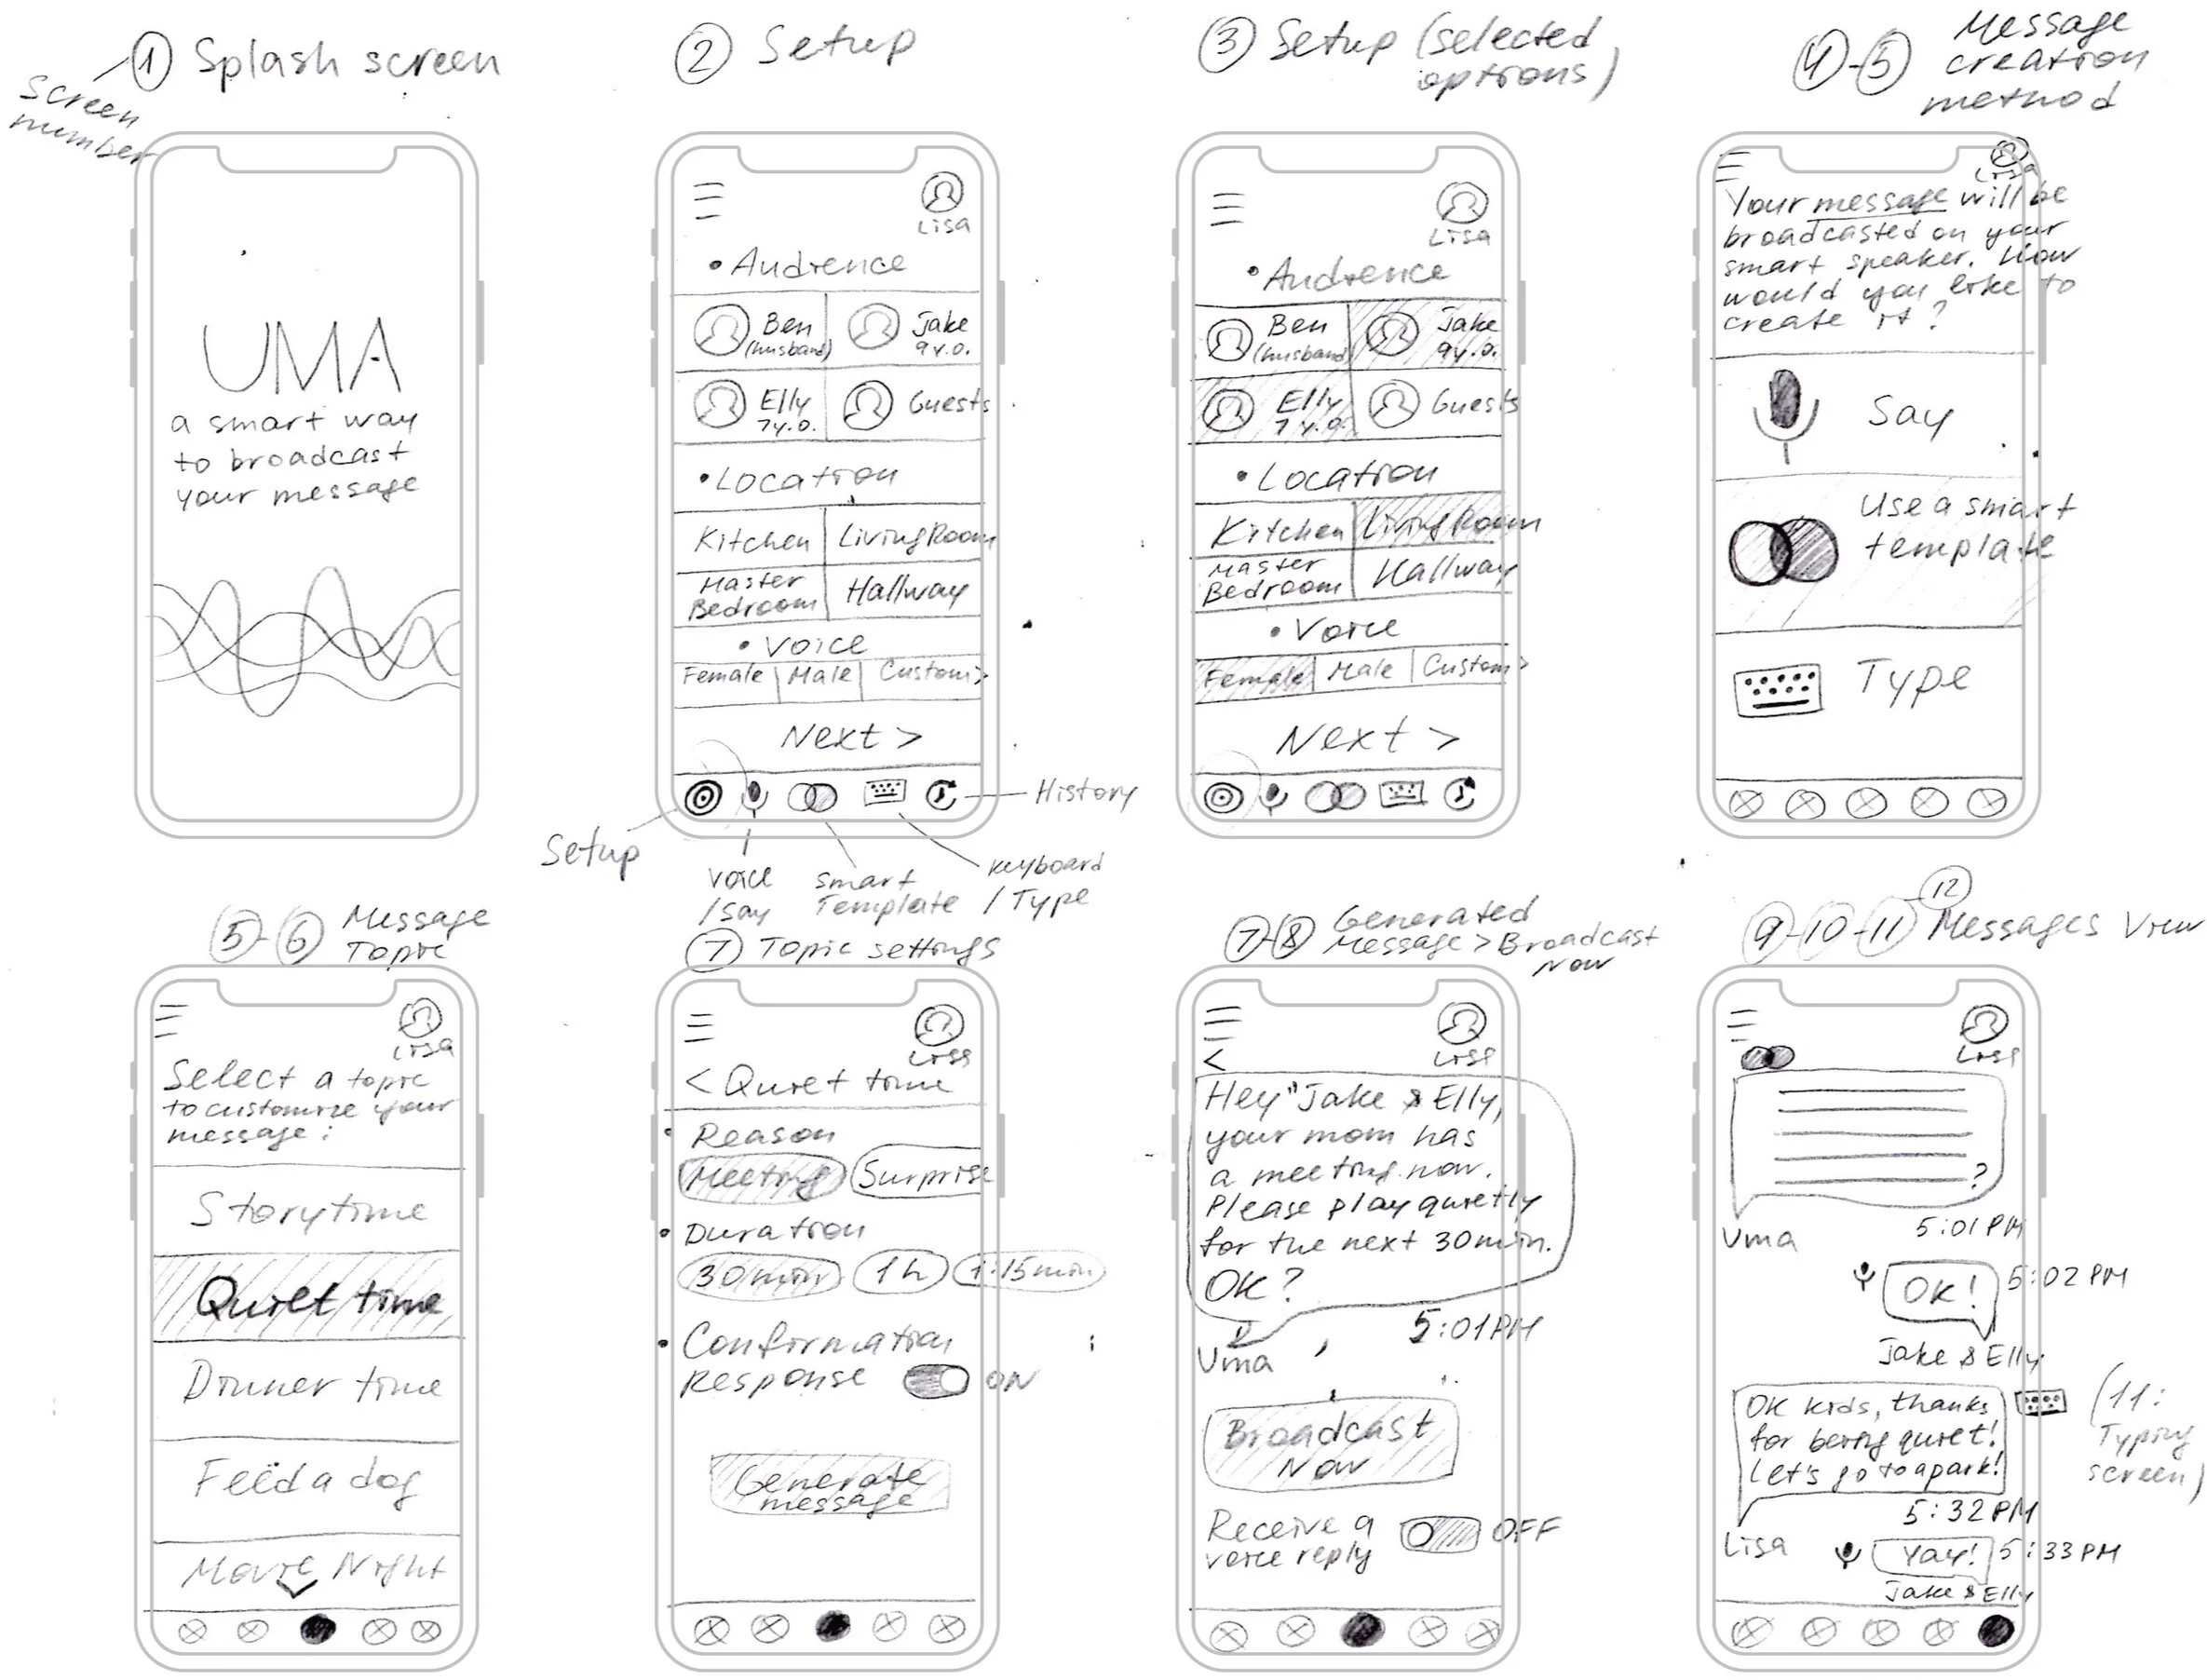 1 Splash screen
screen
number
UMA
a smart way
to broadcast
your message
2 Setup
Lisa
• Audience
Ben
(husband)
Jake
9 y.o.
Elly
7 y.o.
Guests
• Location
Kitchen
Living Room
Master
Bedroom
Hallway
• Voice
Female
Male
Custom >
Next >
History
Setup
voice
/ say
smart
Template
keyboard
/ Type
3 Setup (selected
options)
Lisa
• Audience
Ben
(husband)
Jake
9 y.o.
Elly
7 y.o.
Guests
• Location
Kitchen
Living Room
Master
Bedroom
Hallway
• Voice
Female
Male
Custom >
Next >
4-5 Message
creation
method
Lisa
Your message will be
broadcasted on your
smart speaker. How
would you like to
create it?
Say
Use a smart
template
Type
5-6 Message
Topic
Lisa
Select a topic
to customize your
message:
Storytime
Quiet time
Dinner time
Feed a dog
Movie Night
7 Topic settings
Lisa
< Quiet time
• Reason
Meeting
Surprise
• Duration
30 min
1 h
1:15 min
• Confirmation
Response
ON
Generate
message
7-8 Generated
Message > Broadcast
Now
Lisa
<
Hey "Jake & Elly,
your mom has
a meeting now.
Please play quietly
for the next 30 min.
OK?
5:01 PM
Uma
Broadcast
Now
Receive a
voice reply
OFF
9-10-11 12 Messages View
Lisa
?
Uma
5:01 PM
OK!
5:02 PM
Jake & Elly
OK kids, thanks
for being quiet!
Let's go to a park!
(11:
Typing
screen)
5:32 PM
Lisa
Yay!
5:33 PM
Jake & Elly